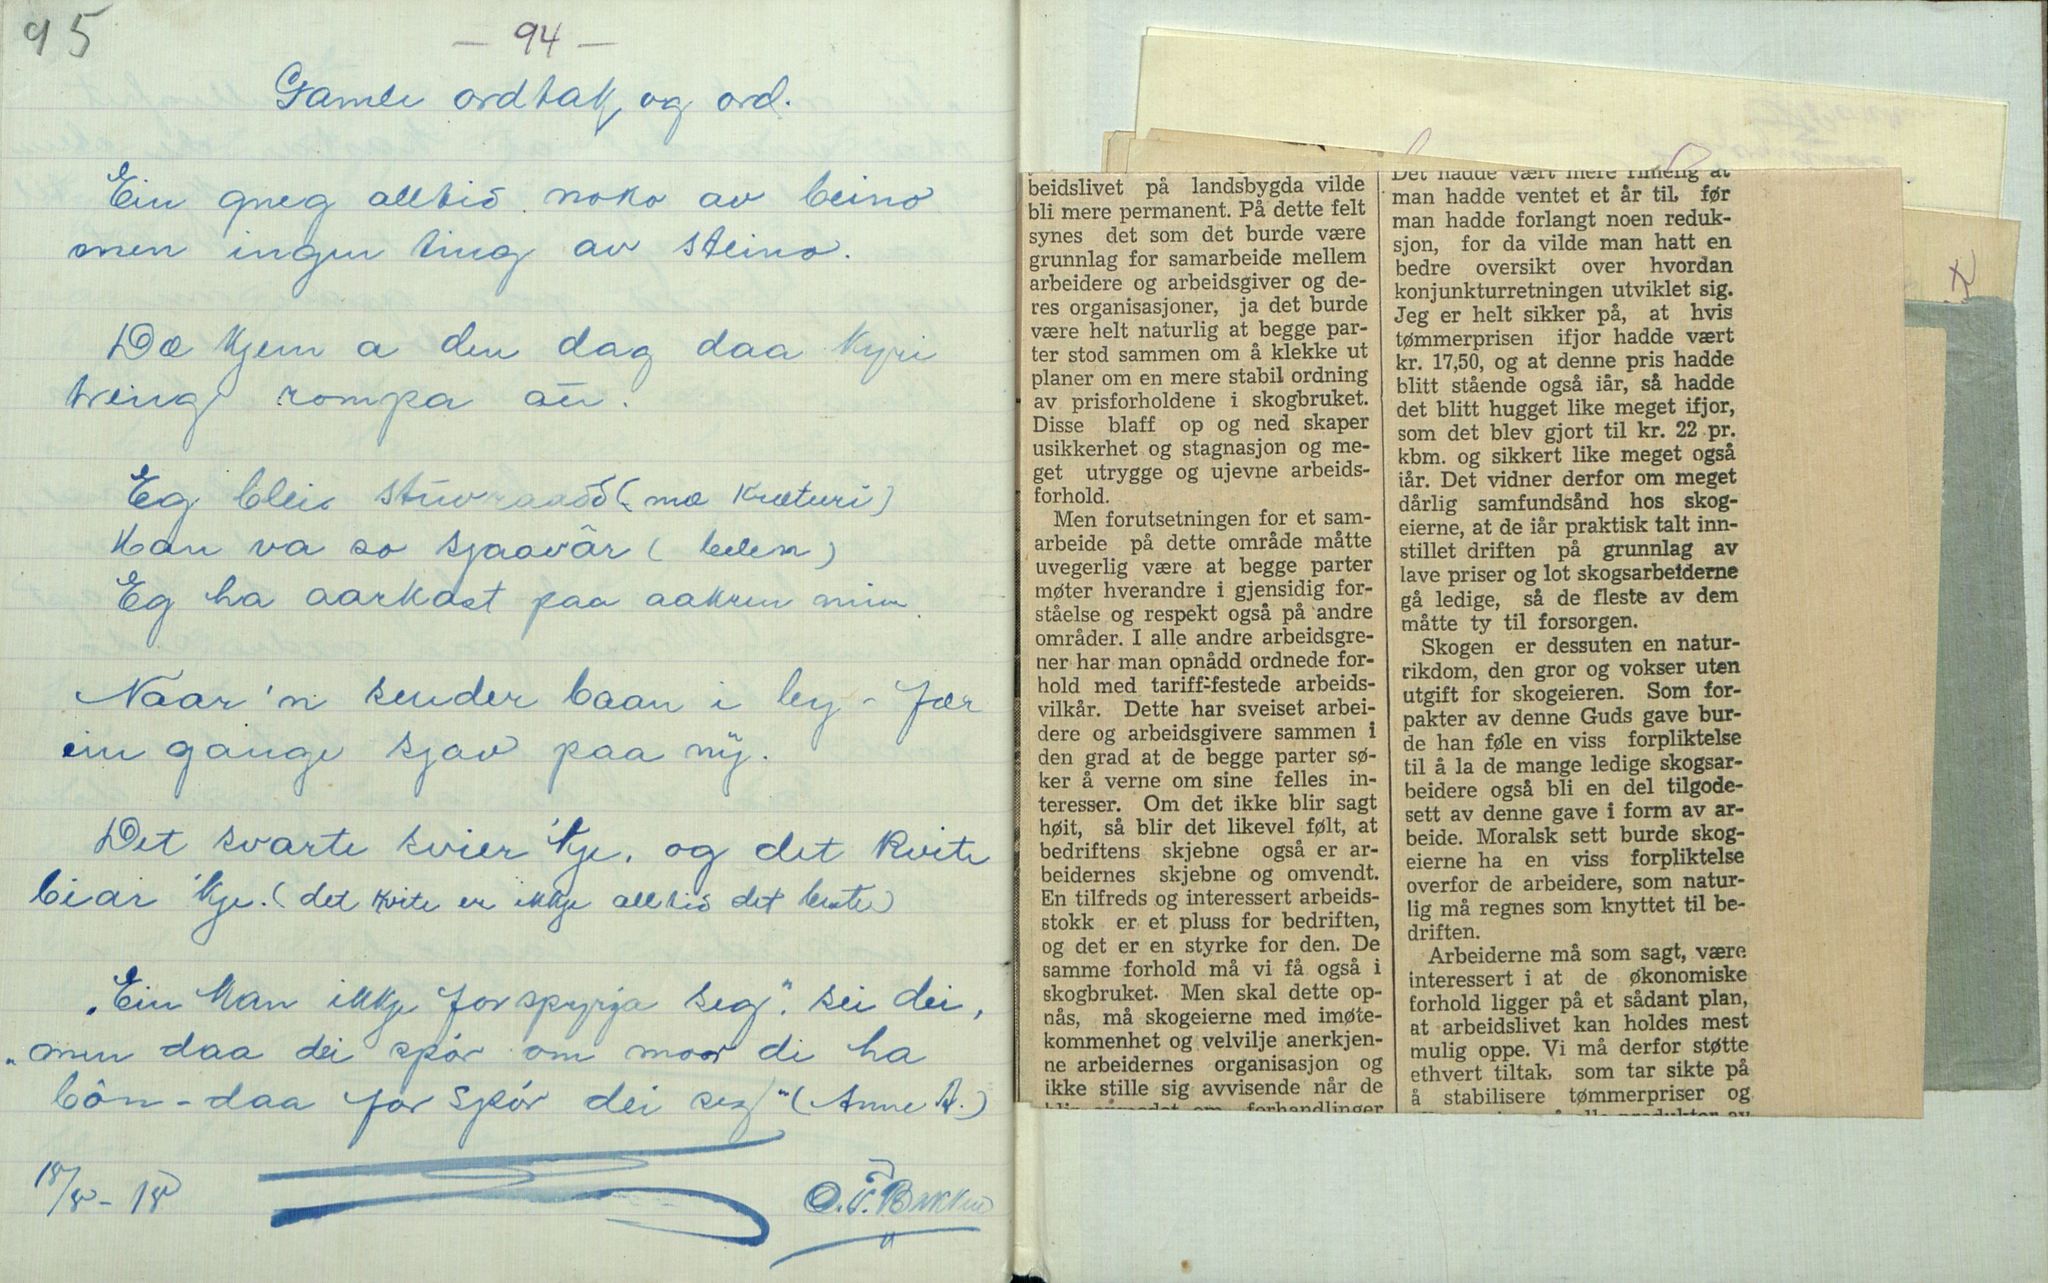 95
— 94 —
Gamle ordtak og ord.
Ein gneg alltid noko av beino
men ingen ting av steino.
Dæ kjem a den dag daa kyri
treng rompa ău.
Eg blei stuvraadd (mæ Kræturi)
Han va so sjaavår (
Eg ha aarkast paa aakren min
Naar 'n sender baan i by - fær
ein gange sjav paa ny.
Det svarte svier 'kje, og det kvite
biar 'kje. (det kvite er ikkje alltid det beste)
"Ein kan ikkje forspyrja seg". sei dei,
"men daa dei spör om moor di ha
bôn - daa forspör dei seg" (Anne A.)
18/8 - 18
O.T. Bakken
beidslivet på landsbygda vilde
bli mere permanent. På dette felt
synes det som det burde være
grunnlag for samarbeide mellem
arbeidere og arbeidsgiver og de-
res organisasjoner, ja det burde
være helt naturlig at begge par-
ter stod sammen om å klekke ut
planer om en mere stabil ordning
av prisforholdene i skogbruket.
Disse blaff op og ned skaper
usikkerhet og stagnasjon og me-
get utrygge og ujevne arbeids-
forhold.
Men forutsetningen for et sam-
arbeide på dette område måtte
uvegerlig være at begge parter
møter hverandre i gjensidig for-
ståelse og respekt også på andre
områder. I alle andre arbeidsgre-
ner har man opnådd ordnede for-
hold med tariff-festede arbeids-
vilkår. Dette har sveiset arbei-
dere og arbeidsgivere sammen i
den grad at de begge parter sø-
ker å verne om sine felles in-
teresser. Om det ikke blir sagt
høit, så blir det likevel følt, at
bedriftens skjebne også er ar-
beidernes skjebne og omvendt.
En tilfreds og interessert arbeids-
stokk er et pluss for bedriften,
og det er en styrke for den. De
samme forhold må vi få også i
skogbruket. Men skal dette op-
nås, må skogeierne med imøte-
kommenhet og velvilje anerkjen-
ne arbeidernes organisasjon og
ikke stille sig avvisende når de
forhandlinger
Det hadde vært mere rimelig at
man hadde ventet et år til, før
man hadde forlangt noen reduk-
sjon, for da vilde man hatt en
bedre oversikt over hvordan
konjunkturretningen utviklet sig.
Jeg er helt sikker på, at hvis
tømmerprisen ifjor hadde vært
kr. 17,50, og at denne pris hadde
blitt stående også iår, så hadde
det blitt hugget like meget ifjor,
som det blev gjort til kr. 22 pr.
kbm. og sikkert like meget også
iår. Det vidner derfor om meget
dårlig samfundsånd hos skog-
eierne, at de iår praktisk talt inn-
stillet driften på grunnlag av
lave priser og lot skogsarbeiderne
gå ledige, så de fleste av dem
måtte ty til forsorgen.
Skogen er dessuten en natur-
rikdom, den gror og vokser uten
utgift for skogeieren. Som for-
pakter av denne Guds gave bur-
de han føle en viss forpliktelse
til å la de mange ledige skogsar-
beidere også bli en del tilgode-
sett av denne gave i form av ar-
beide. Moralsk sett burde skog-
eierne ha en viss forpliktelse
overfor de arbeidere, som natur-
lig må regnes som knyttet til be-
driften.
Arbeiderne må som sagt, være
interessert i at de økonomiske
forhold ligger på et sådant plan,
at arbeidslivet kan holdes mest
mulig oppe. Vi må derfor støtte
ethvert tiltak, som tar sikte på
å stabilisere tømmerpriser og